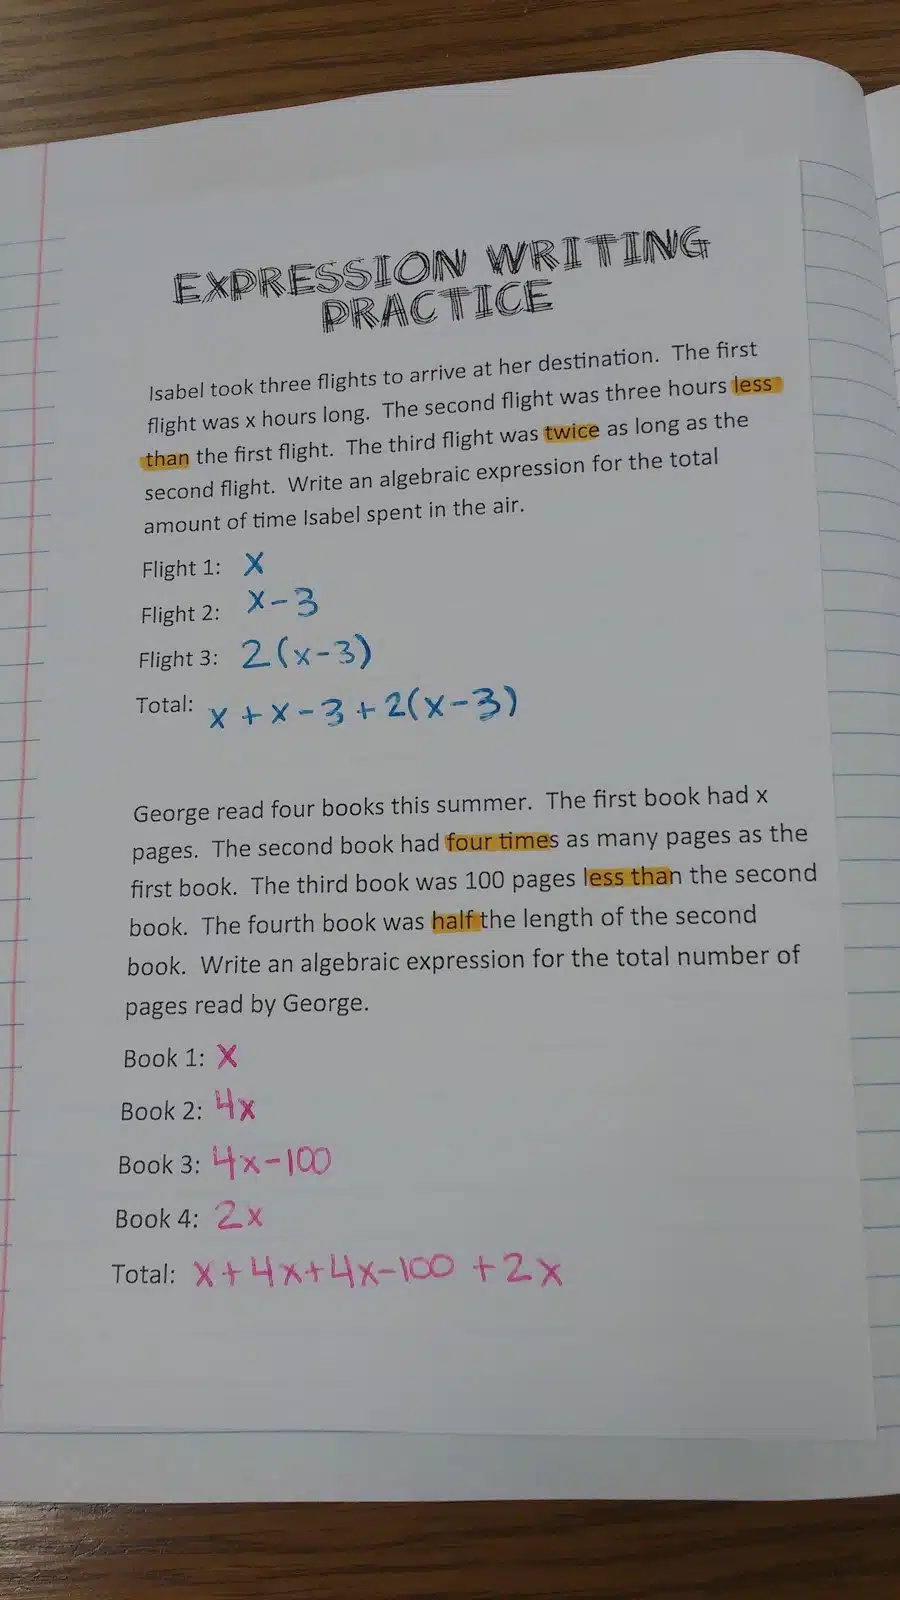 EXPRESSION WRITING
PRACTICE
Isabel took three flights to arrive at her destination. The first
flight was x hours long. The second flight was three hours less
than the first flight. The third flight was twice as long as the
second flight. Write an algebraic expression for the total
amount of time Isabel spent in the air.
Flight 1: x
Flight 2: x-3
Flight 3: 2(x-3)
Total: x + x - 3 + 2(x-3)
George read four books this summer. The first book had x
pages. The second book had four times as many pages as the
first book. The third book was 100 pages less than the second
book. The fourth book was half the length of the second
book. Write an algebraic expression for the total number of
pages read by George.
Book 1: x
Book 2: 4x
Book 3: 4x-100
Book 4: 2x
Total: x+4x+4x-100 +2x